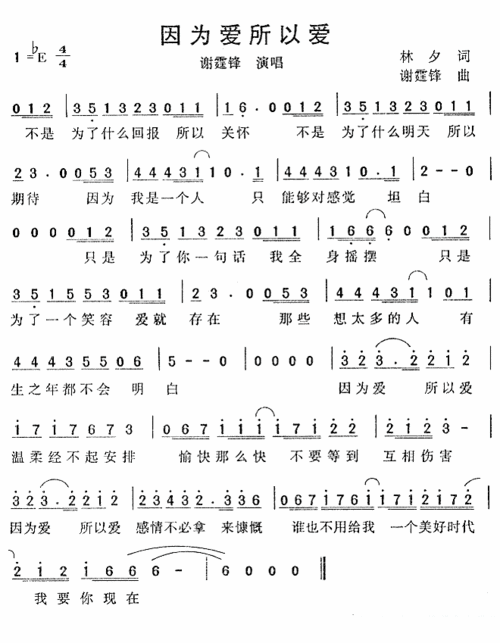 因为爱所以爱
1=♭E 4/4
谢霆锋 演唱
林 夕 词
谢霆锋 曲
0 1 2 | 3 5 1 3 2 3 0 1 1 | 1 6 · 0 0 1 2 | 3 5 1 3 2 3 0 1 1 |
不是 为了什么回报 所以 关怀 不是 为了什么明天 所以
2 3 · 0 0 5 3 | 4 4 4 3 1 1 0 · 1 | 4 4 4 3 1 0 · 1 | 2 - - 0 |
期待 因为 我是一个人 只 能够对感觉 坦白
0 0 0 0 1 2 | 3 5 1 3 2 3 0 1 1 | 1 6 6 6 0 0 1 2 |
只是 为了你一句话 我全 身摇摆 只是
3 5 1 5 5 3 0 1 1 | 2 3 · 0 0 5 3 | 4 4 4 3 1 1 0 1 |
为了一个笑容 爱就 存在 那些 想太多的人 有
4 4 4 3 5 5 0 6 | 5 - - 0 | 0 0 0 0 | 3 2 3 · 2 2 1 2 |
生之年都不会 明白 因为爱 所以爱
1 7 1 7 6 7 3 | 0 6 7 1 1 1 1 7 1 | 2 2 1 2 3 - |
温柔经不起安排 愉快那么快 不要等到 互相伤害
3 2 3 · 2 2 1 2 | 2 3 4 3 2 · 2 1 2 | 0 6 7 1 7 6 1 1 7 1 2 1 |
因为爱 所以爱 感情不必拿 来慷慨 谁也不用给我 一个美好时代
2 1 2 1 6 6 6 - | 6 0 0 0 ‖
我要你现在